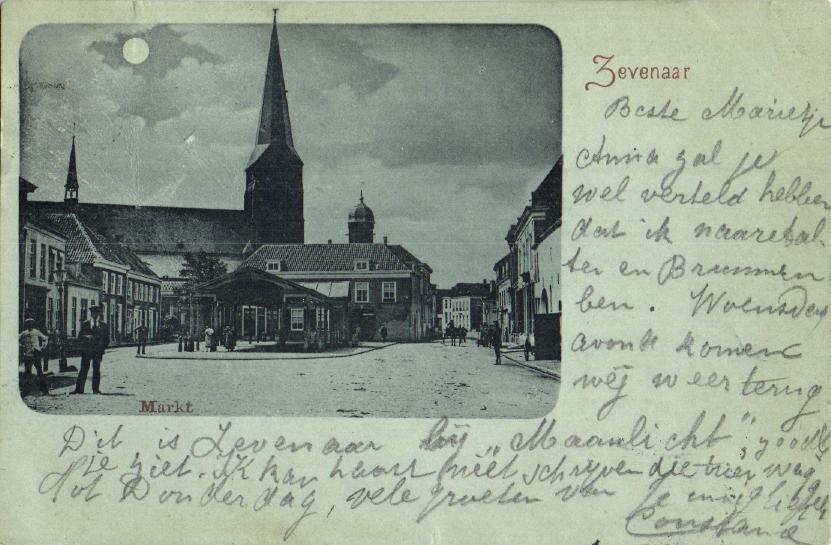 Zevenaar
Beste Marietje
Anna zal je
wel verteld hebben
dat ik naar
en Brummen
ben. Woensdag
avond komen
wij weer terug
Markt
Dit is Zevenaar bij „Maanlicht",
je ziet. Ik kan haast niet schrijven
Tot Donderdag, vele groeten van je
Constance